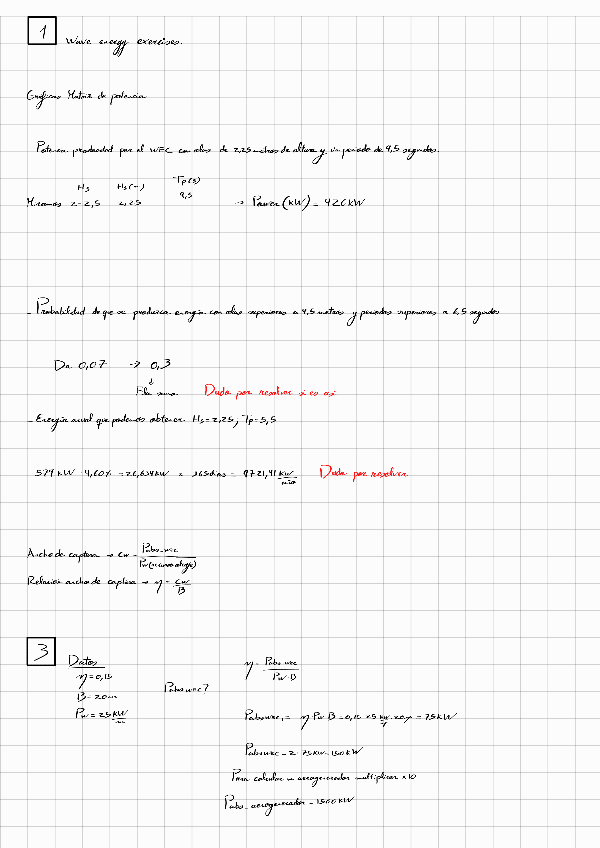 1 Wave energy exercises.
Graficas Matriz de potencia
Potencia producidad por el WEC con olas de 2,25 metros de altura y un periodo de 9,5 segundos.
Hs Hs(m) Tp(s)
Miramos 2-2,5 2,25 9,5 → Power (kW) = 426 kW
- Probabilidad de que se produzca energía con olas superiores a 4,5 metros y periodos superiores a 6,5 segundos
Da 0,07 → 0,3
Ella suma. Duda por resolver si es asi
- Energía anual que podemos obtener Hs = 2,25, Tp = 5,5
574 kW · 4,60% = 26,634 kW × 365 dias = 9721,41 kW/año Duda por resolver
Ancho de captura → Cw = Pabs-wec / Pw(recurso oleaje)
Relacion ancho de captura → η = Cw / B
3 Datos
η = 0,15
B = 20m
Pw = 25 kW/m
Pabs wec?
η = Pabs wec / Pw·B
Pabs wec, = η · Pw · B = 0,15 × 25 · 20 = 75 kW
Pabs wec = 2 · 75 kW = 150 kW
Para calcular un aerogenerador multiplicar × 10
Pabs_aerogenerador = 1500 kW